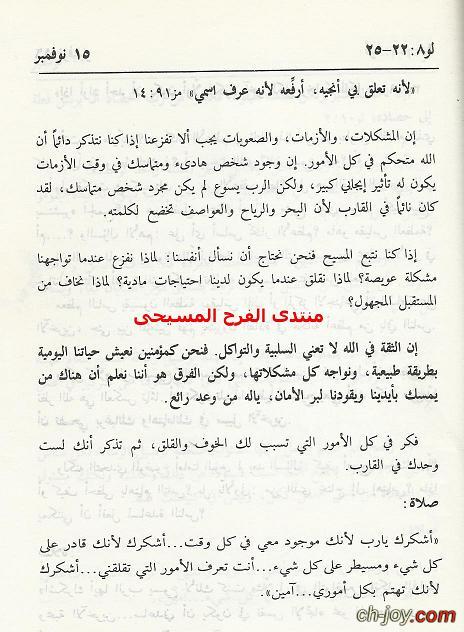 لو٨: ٢٢-٢٥
١٥ نوفمبر
«لأنه تعلق بي أنجيه، أرفِّعه لأنه عرف اسمي» مز٩١: ١٤
إن المشكلات، والأزمات، والصعوبات يجب ألا تفزعنا إذا كنا نتذكر دائماً أن
الله متحكم في كل الأمور. إن وجود شخص هادىء ومتماسك في وقت الأزمات
يكون له تأثير إيجابي كبير، ولكن الرب يسوع لم يكن مجرد شخص متماسك، لقد
كان نائماً في القارب لأن البحر والرياح والعواصف تخضع لكلمته.
إذا كنا نتبع المسيح فنحن نحتاج أن نسأل أنفسنا: لماذا نفزع عندما تواجهنا
مشكلة عويصة؟ لماذا نقلق عندما يكون لدينا احتياجات مادية؟ لماذا نخاف من
المستقبل المجهول؟
منتدى الفرح المسيحى
إن الثقة في الله لا تعني السلبية والتواكل. فنحن كمؤمنين نعيش حياتنا اليومية
بطريقة طبيعية، ونواجه كل مشكلاتها، ولكن الفرق هو أننا نعلم أن هناك من
يمسك بأيدينا ويقودنا لبر الأمان، ياله من وعد رائع.
فكر في كل الأمور التي تسبب لك الخوف والقلق، ثم تذكر أنك لست
وحدك في القارب.
صلاة:
«أشكرك يارب لأنك موجود معي في كل وقت...أشكرك لأنك قادر على
كل شيء ومسيطر على كل شيء...أنت تعرف الأمور التي تقلقني...أشكرك
لأنك تهتم بكل أموري...آمين».
ch-joy.com